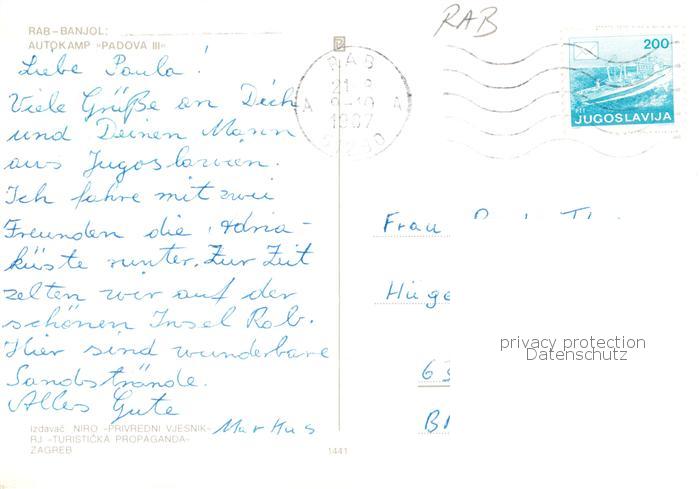 RAB-BANJOL:
AUTOKAMP »PADOVA III«
RAB
Liebe Paula!
Viele Grüße an Dich
und Deinen Mann
aus Jugoslawien.
Ich fahre mit zwei
Freunden die Adria-
küste runter. Zur Zeit
zelten wir auf der
schönen Insel Rab.
Hier sind wunderbare
Sandstrände.
Alles Gute
Markus
izdavač: NIRO -PRIVREDNI VJESNIK-
RJ -TURISTIČKA PROPAGANDA-
ZAGREB
1441
RAB
9-10
A A
1987
51280
200
JUGOSLAVIJA
Frau
privacy protection
Datenschutz